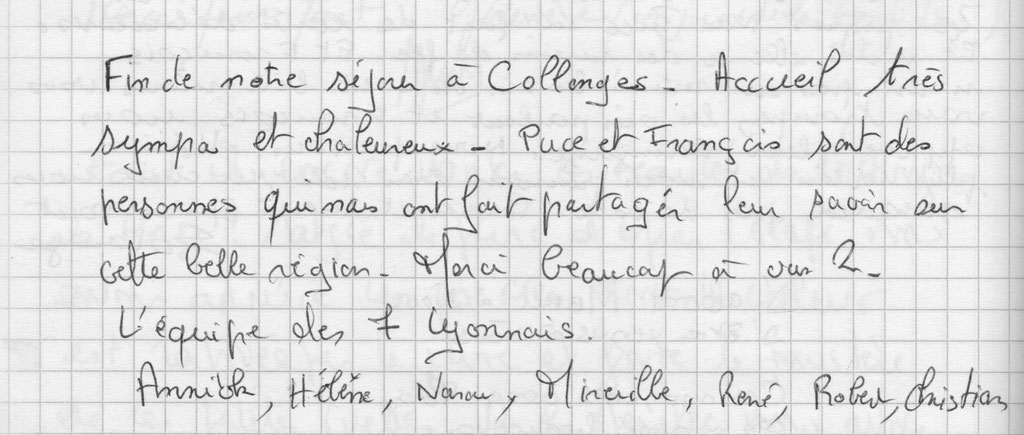 Fin de notre séjour à Collonges - Accueil très
sympa et chaleureux - Puce et François sont des
personnes qui nous ont fait partager leur savoir sur
cette belle région - Merci beaucoup à vous 2 -
L'équipe des 7 Lyonnais.
Annick, Hélène, Mireille, René, Robert, Christian